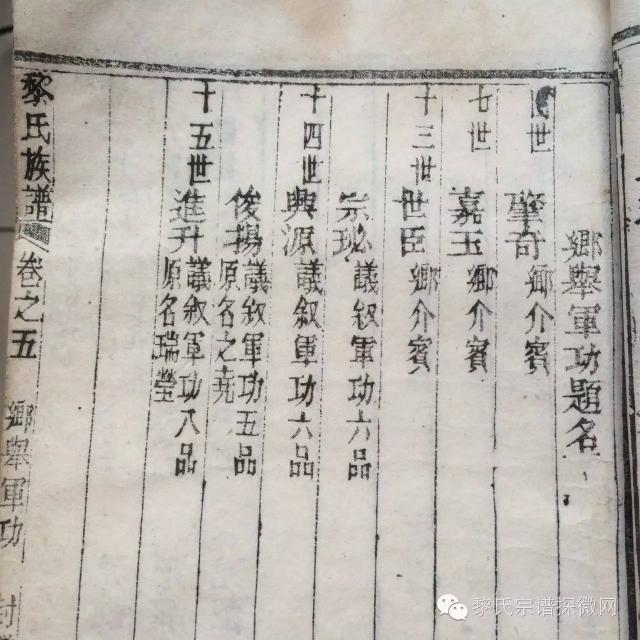 鄉舉軍功題名
世 肇奇 鄉介賓
七世 嘉玉 鄉介賓
十三世 世臣 鄉介賓
宗珌 議叙軍功六品
十四世 興源 議叙軍功六品
俊揚 議叙軍功五品 原名之堯
十五世 進升 議叙軍功八品 原名瑞瑩
黎氏族譜 卷之五 鄉舉軍功
黎氏宗谱探微网